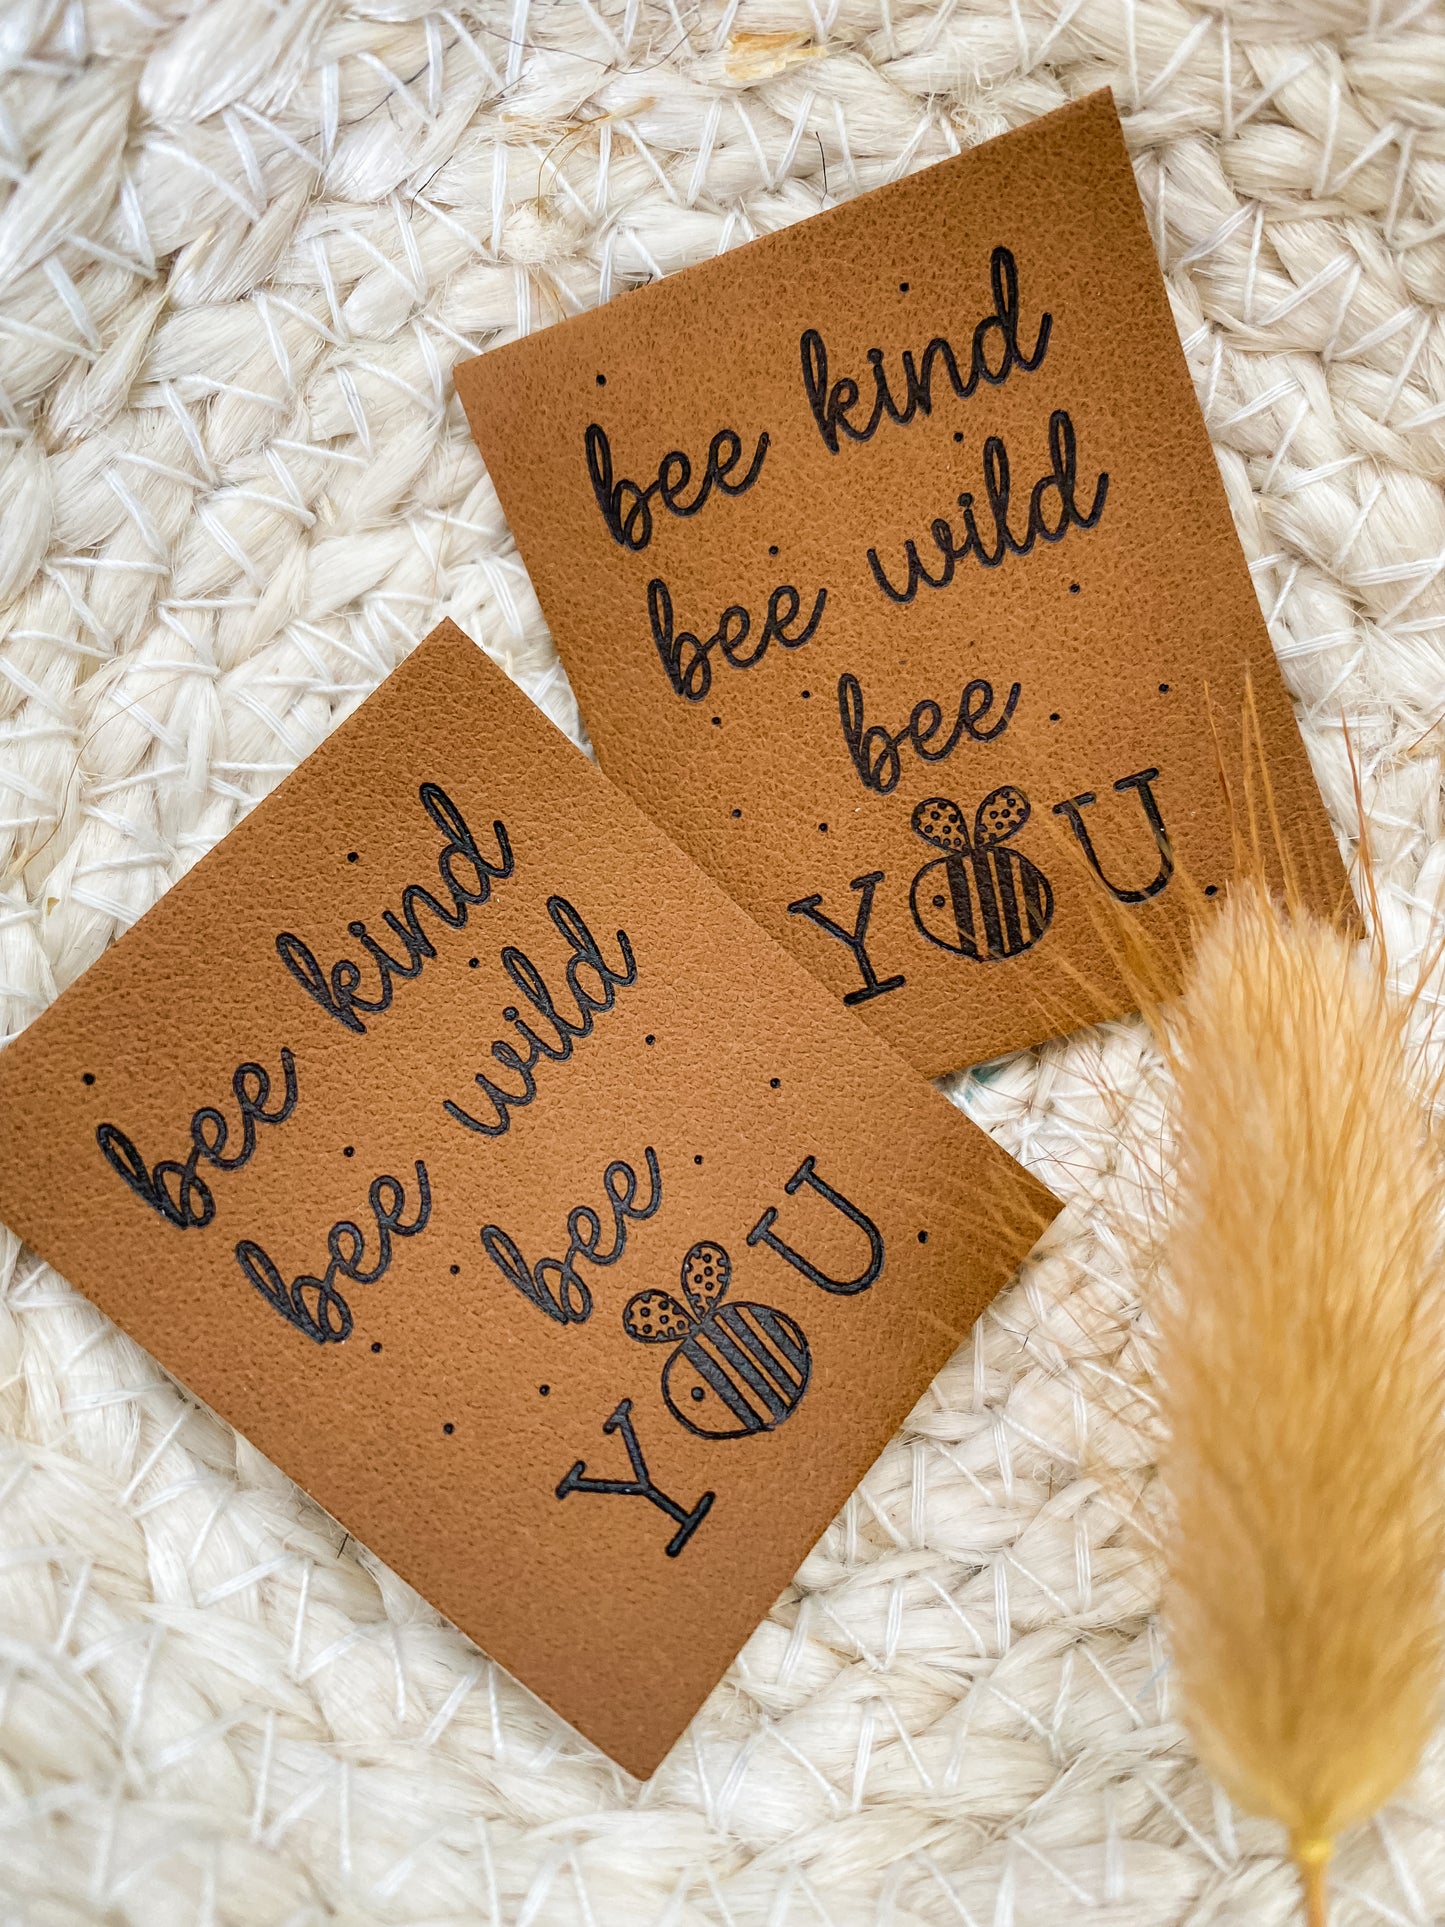 bee kind
bee wild
bee
YOU
bee kind
bee wild
bee
YOU